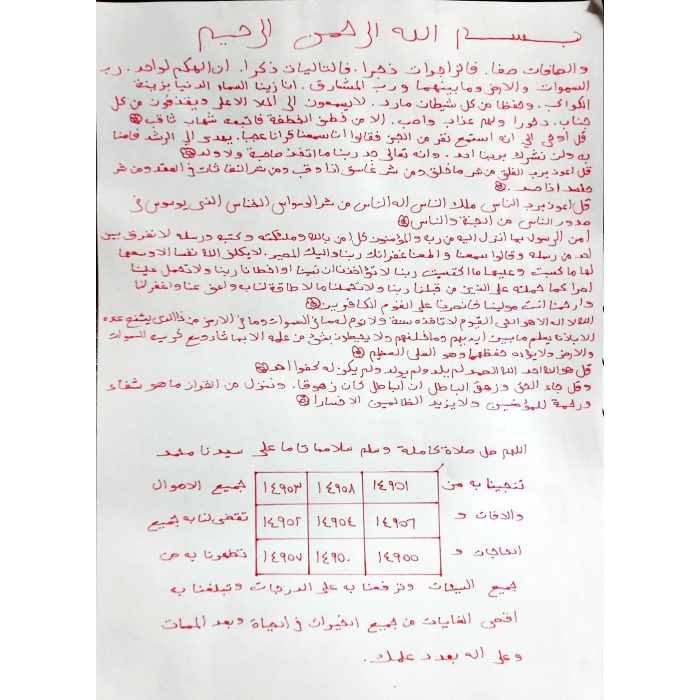 بسم الله الرحمن الرحيم
والصافات صفا. فالزاجرات زجرا. فالتاليات ذكرا. ان الهكم لواحد. رب
السموات والارض وما بينهما ورب المشارق. انا زينا السماء الدنيا بزينة
الكواكب. وحفظا من كل شيطان مارد. لا يسمعون الى الملا الاعلى ويقذفون من كل
جناب. دحورا ولهم عذاب واصب. الا من خطف الخطفة فاتبعه شهاب ثاقب
قل أوحي الي انه استمع نفر من الجن فقالوا انا سمعنا قرانا عجبا. يهدى الى الرشد فامنا
به ولن نشرك بربنا احد. وانه تعالى جد ربنا ما اتخذ صاحبة ولا ولد
قل اعوذ برب الفلق من شر ما خلق ومن شر غاسق اذا وقب ومن شر النفاثات في العقد ومن شر
حاسد اذا حسد.
قل اعوذ برب الناس ملك الناس اله الناس من شر الوسواس الخناس الذى يوسوس في
صدور الناس من الجنة والناس
امن الرسول بما انزل اليه من ربه والمؤمنون كل امن بالله وملئكته وكتبه ورسله لا نفرق بين
احد من رسله وقالوا سمعنا واطعنا غفرانك ربنا واليك المصير. لا يكلف الله نفسا الا وسعها
لها ما كسبت وعليها ما اكتسبت ربنا لا تؤاخذنا ان نسينا او اخطانا ربنا ولا تحمل علينا
اصرا كما حملته على الذين من قبلنا ربنا ولا تحملنا ما لا طاقة لنا به واعف عنا واغفر لنا
وارحمنا انت مولينا فانصرنا على القوم الكافرين
الله لا اله الا هو الحي القيوم لا تاخذه سنة ولا نوم له ما في السموات وما في الارض من ذا الذى يشفع عنده
الا باذنه يعلم ما بين ايديهم وما خلفهم ولا يحيطون بشئ من علمه الا بما شاء وسع كرسيه السموات
والارض ولا يؤده حفظهما وهو العلى العظيم
قل هو الله احد الله الصمد لم يلد ولم يولد ولم يكن له كفوا احد
وقل جاء الحق وزهق الباطل ان الباطل كان زهوقا. وننزل من القران ما هو شفاء
ورحمة للمؤمنين ولا يزيد الظالمين الا خسارا
اللهم صل صلاة كاملة وسلم سلاما تاما على سيدنا محمد
تنجينا به من ١٤٩٥١ ١٤٩٥٨ ١٤٩٥٣ جميع الاهوال
والافات و ١٤٩٥٦ ١٤٩٥٤ ١٤٩٥٢ تقضى لنا به جميع
الحاجات و ١٤٩٥٥ ١٤٩٥٠ ١٤٩٥٧ تطهرنا به من
جميع السيئات وترفعنا به على الدرجات وتبلغنا به
اقصى الغايات من جميع الخيرات في الحياة وبعد الممات
وعلى اله بعدد علمك.